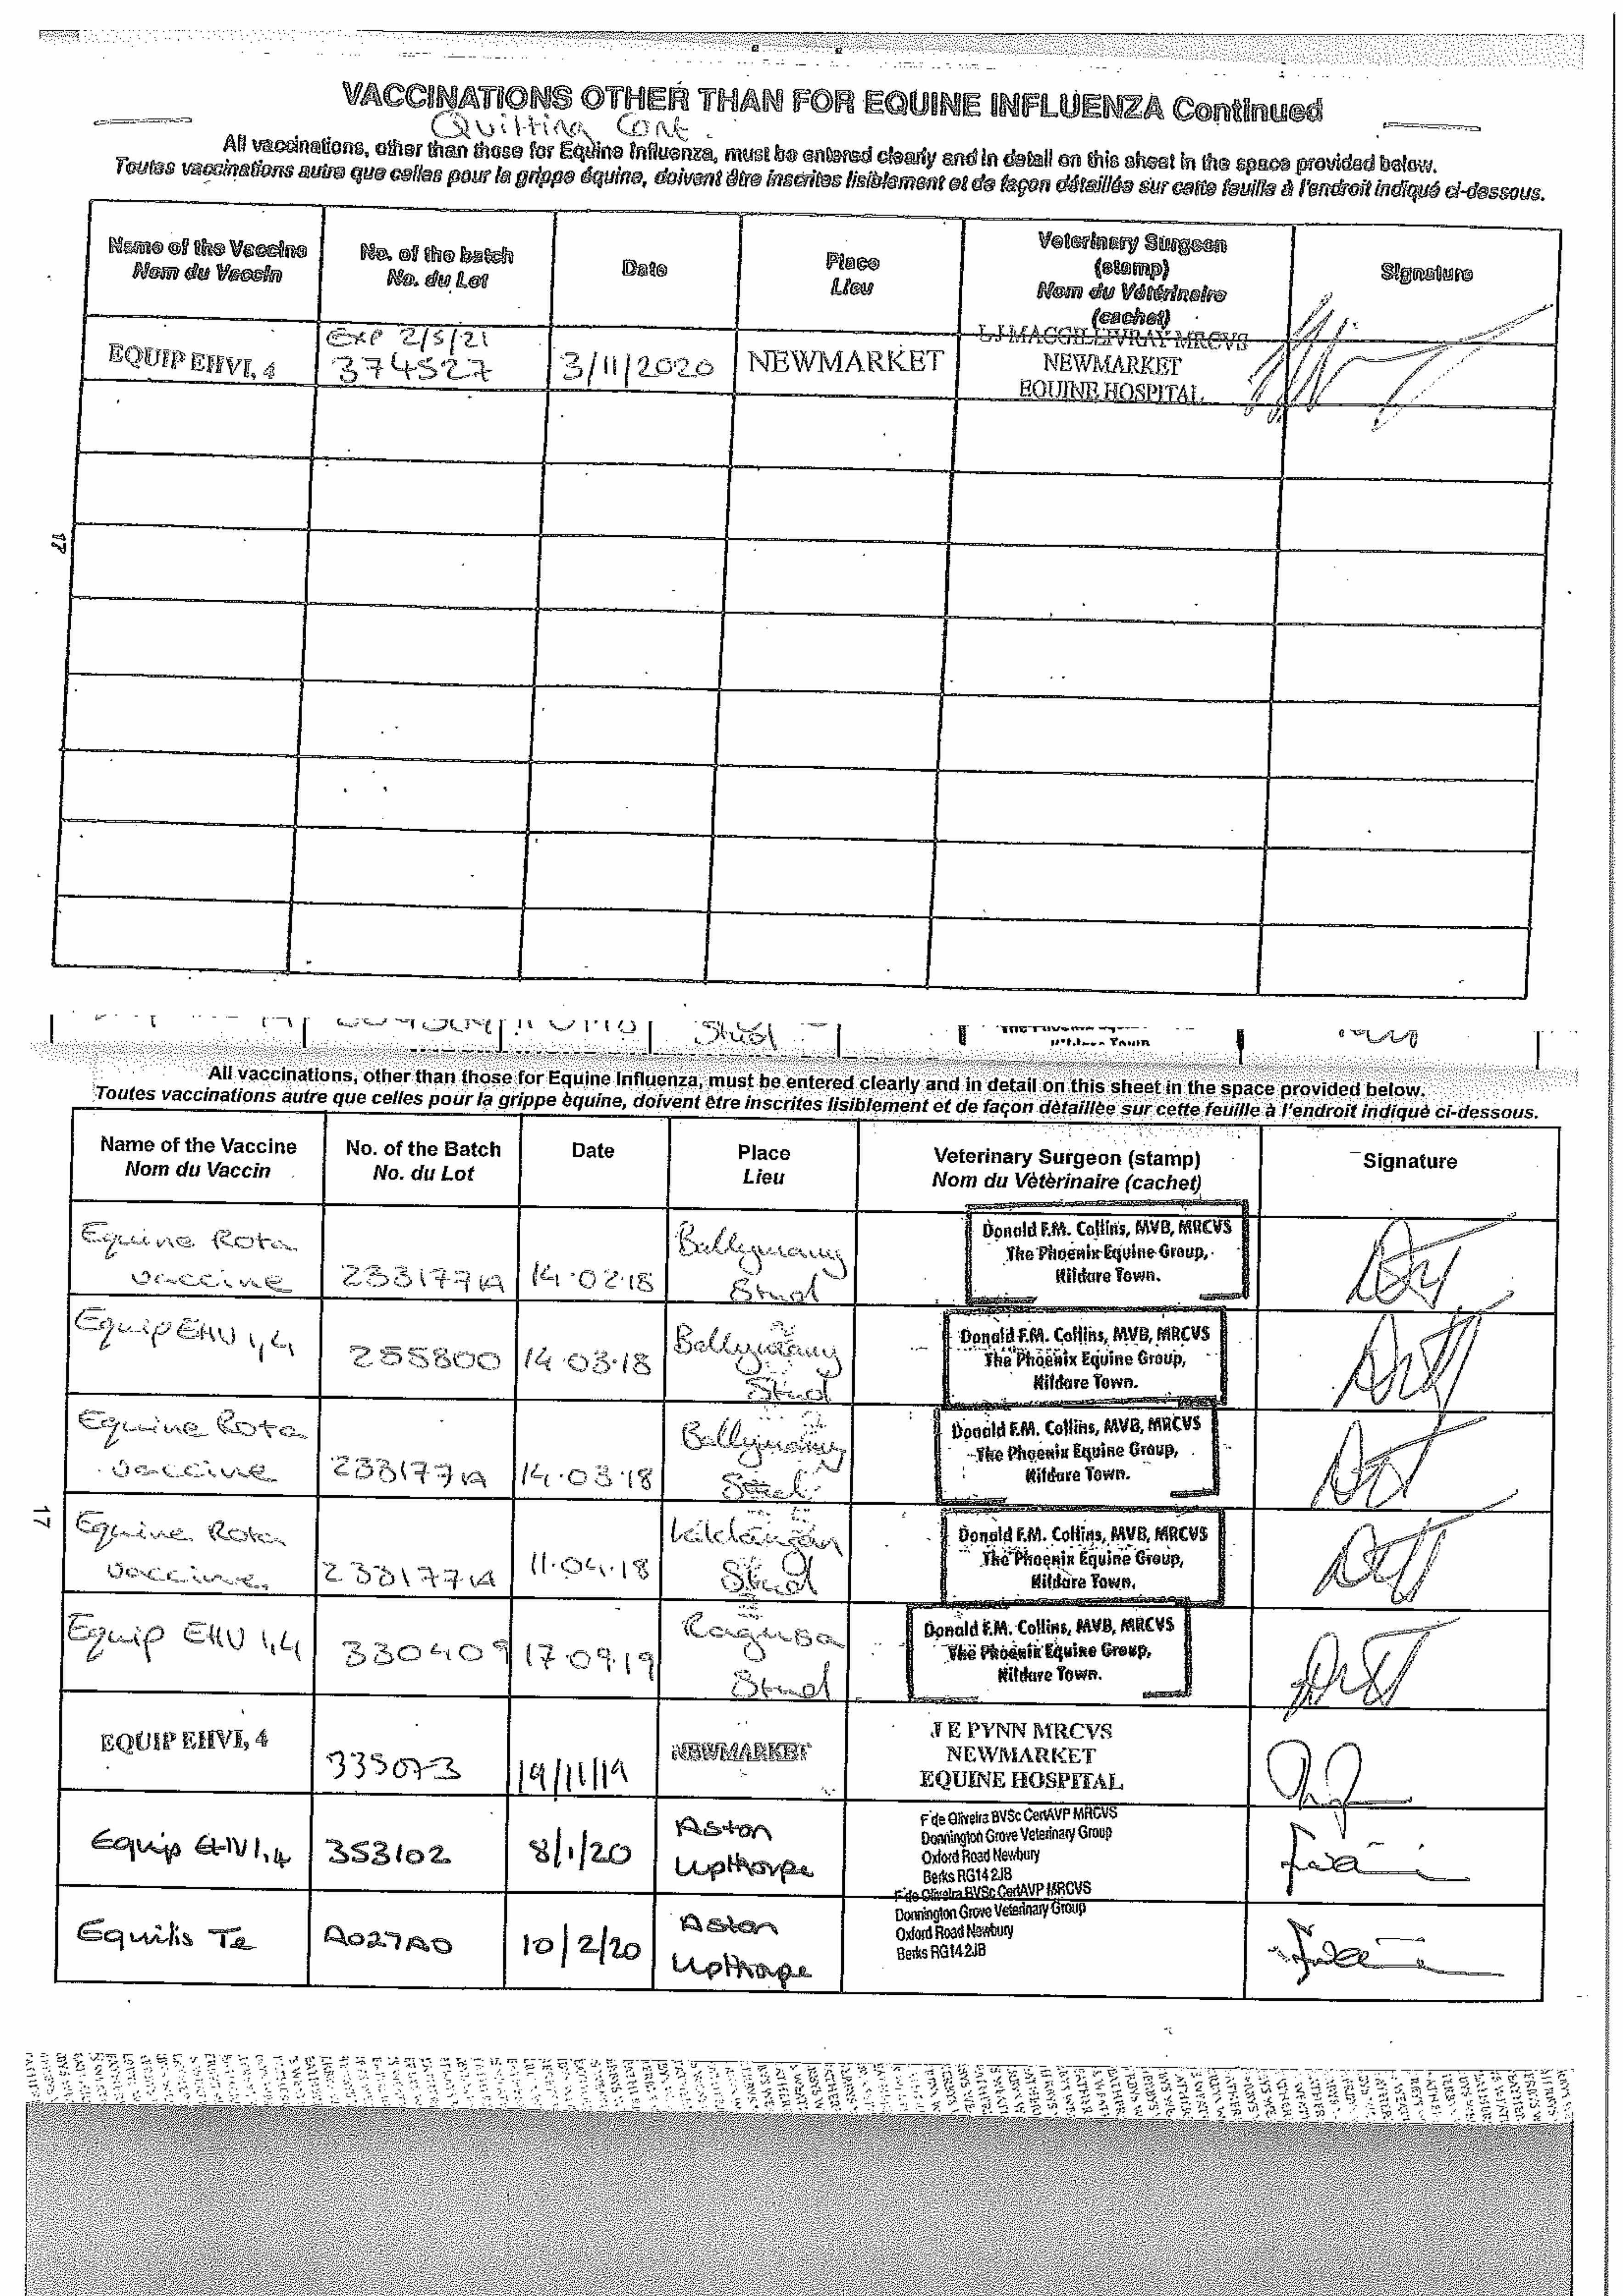 VACCINATIONS OTHER THAN FOR EQUINE INFLUENZA Continued
Quilting Cont.
All vaccinations, other than those for Equine Influenza, must be entered clearly and in detail on this sheet in the space provided below.
Toutes vaccinations autre que celles pour la grippe équine, doivent être inscrites lisiblement et de façon détaillée sur cette feuille à l'endroit indiqué ci-dessous.
Name of the Vaccine
Nom du Vaccin
No. of the batch
No. du Lot
Date
Place
Lieu
Veterinary Surgeon
(stamp)
Nom du Vétérinaire
(cachet)
Signature
EQUIP EHVI, 4
EXP 2/5/21
374527
3/11/2020
NEWMARKET
L J MACGILLIVRAY MRCVS
NEWMARKET
EQUINE HOSPITAL
17
Stud
All vaccinations, other than those for Equine Influenza, must be entered clearly and in detail on this sheet in the space provided below.
Toutes vaccinations autre que celles pour la grippe èquine, doivent ètre inscrites lisiblement et de façon dètaillèe sur cette feuille à l'endroit indiquè ci-dessous.
Name of the Vaccine
Nom du Vaccin
No. of the Batch
No. du Lot
Date
Place
Lieu
Veterinary Surgeon (stamp)
Nom du Vètèrinaire (cachet)
Signature
Equine Rota
vaccine
233177 1A
14.02.18
Ballymany
Stud
Donald F.M. Collins, MVB, MRCVS
The Phoenix Equine Group,
Kildare Town.
Equip EHV 1,4
255800
14.03.18
Ballymany
Stud
Donald F.M. Collins, MVB, MRCVS
The Phoenix Equine Group,
Kildare Town.
Equine Rota
vaccine
233177 1A
14.03.18
Ballymany
Stud
Donald F.M. Collins, MVB, MRCVS
The Phoenix Equine Group,
Kildare Town.
17
Equine Rota
vaccine
233177 1A
11.04.18
Kildangan
Stud
Donald F.M. Collins, MVB, MRCVS
The Phoenix Equine Group,
Kildare Town.
Equip EHV 1,4
330409
17.09.19
Ragusa
Stud
Donald F.M. Collins, MVB, MRCVS
The Phoenix Equine Group,
Kildare Town.
EQUIP EHVI, 4
335073
19/11/19
NEWMARKET
J E PYNN MRCVS
NEWMARKET
EQUINE HOSPITAL
Equip EHV1,4
353102
8/1/20
Aston
Upthorpe
F de Oliveira BVSc CertAVP MRCVS
Donnington Grove Veterinary Group
Oxford Road Newbury
Berks RG14 2JB
Equilis Te
A027A0
10/2/20
Aston
Upthorpe
F de Oliveira BVSc CertAVP MRCVS
Donnington Grove Veterinary Group
Oxford Road Newbury
Berks RG14 2JB